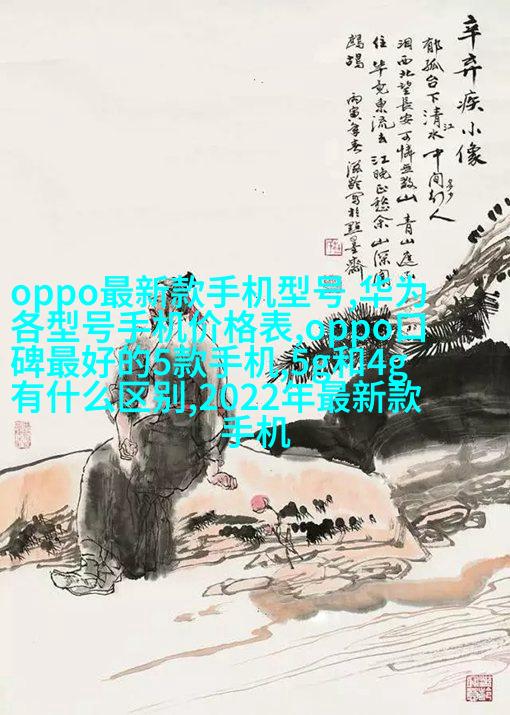 辛弃疾小像
郁孤台下清江水 中间多少行人
泪西北望長安 可憐無数山 青山遮不
住 毕竟東流去 江晚正愁余 山深闻
鹧鸪 丙寅年春 滋龄写於點墨齋
oppo最新款手机型号,华为
各型号手机价格表,oppo口
碑最好的5款手机,5g和4g
有什么区别,2022年最新款
手机